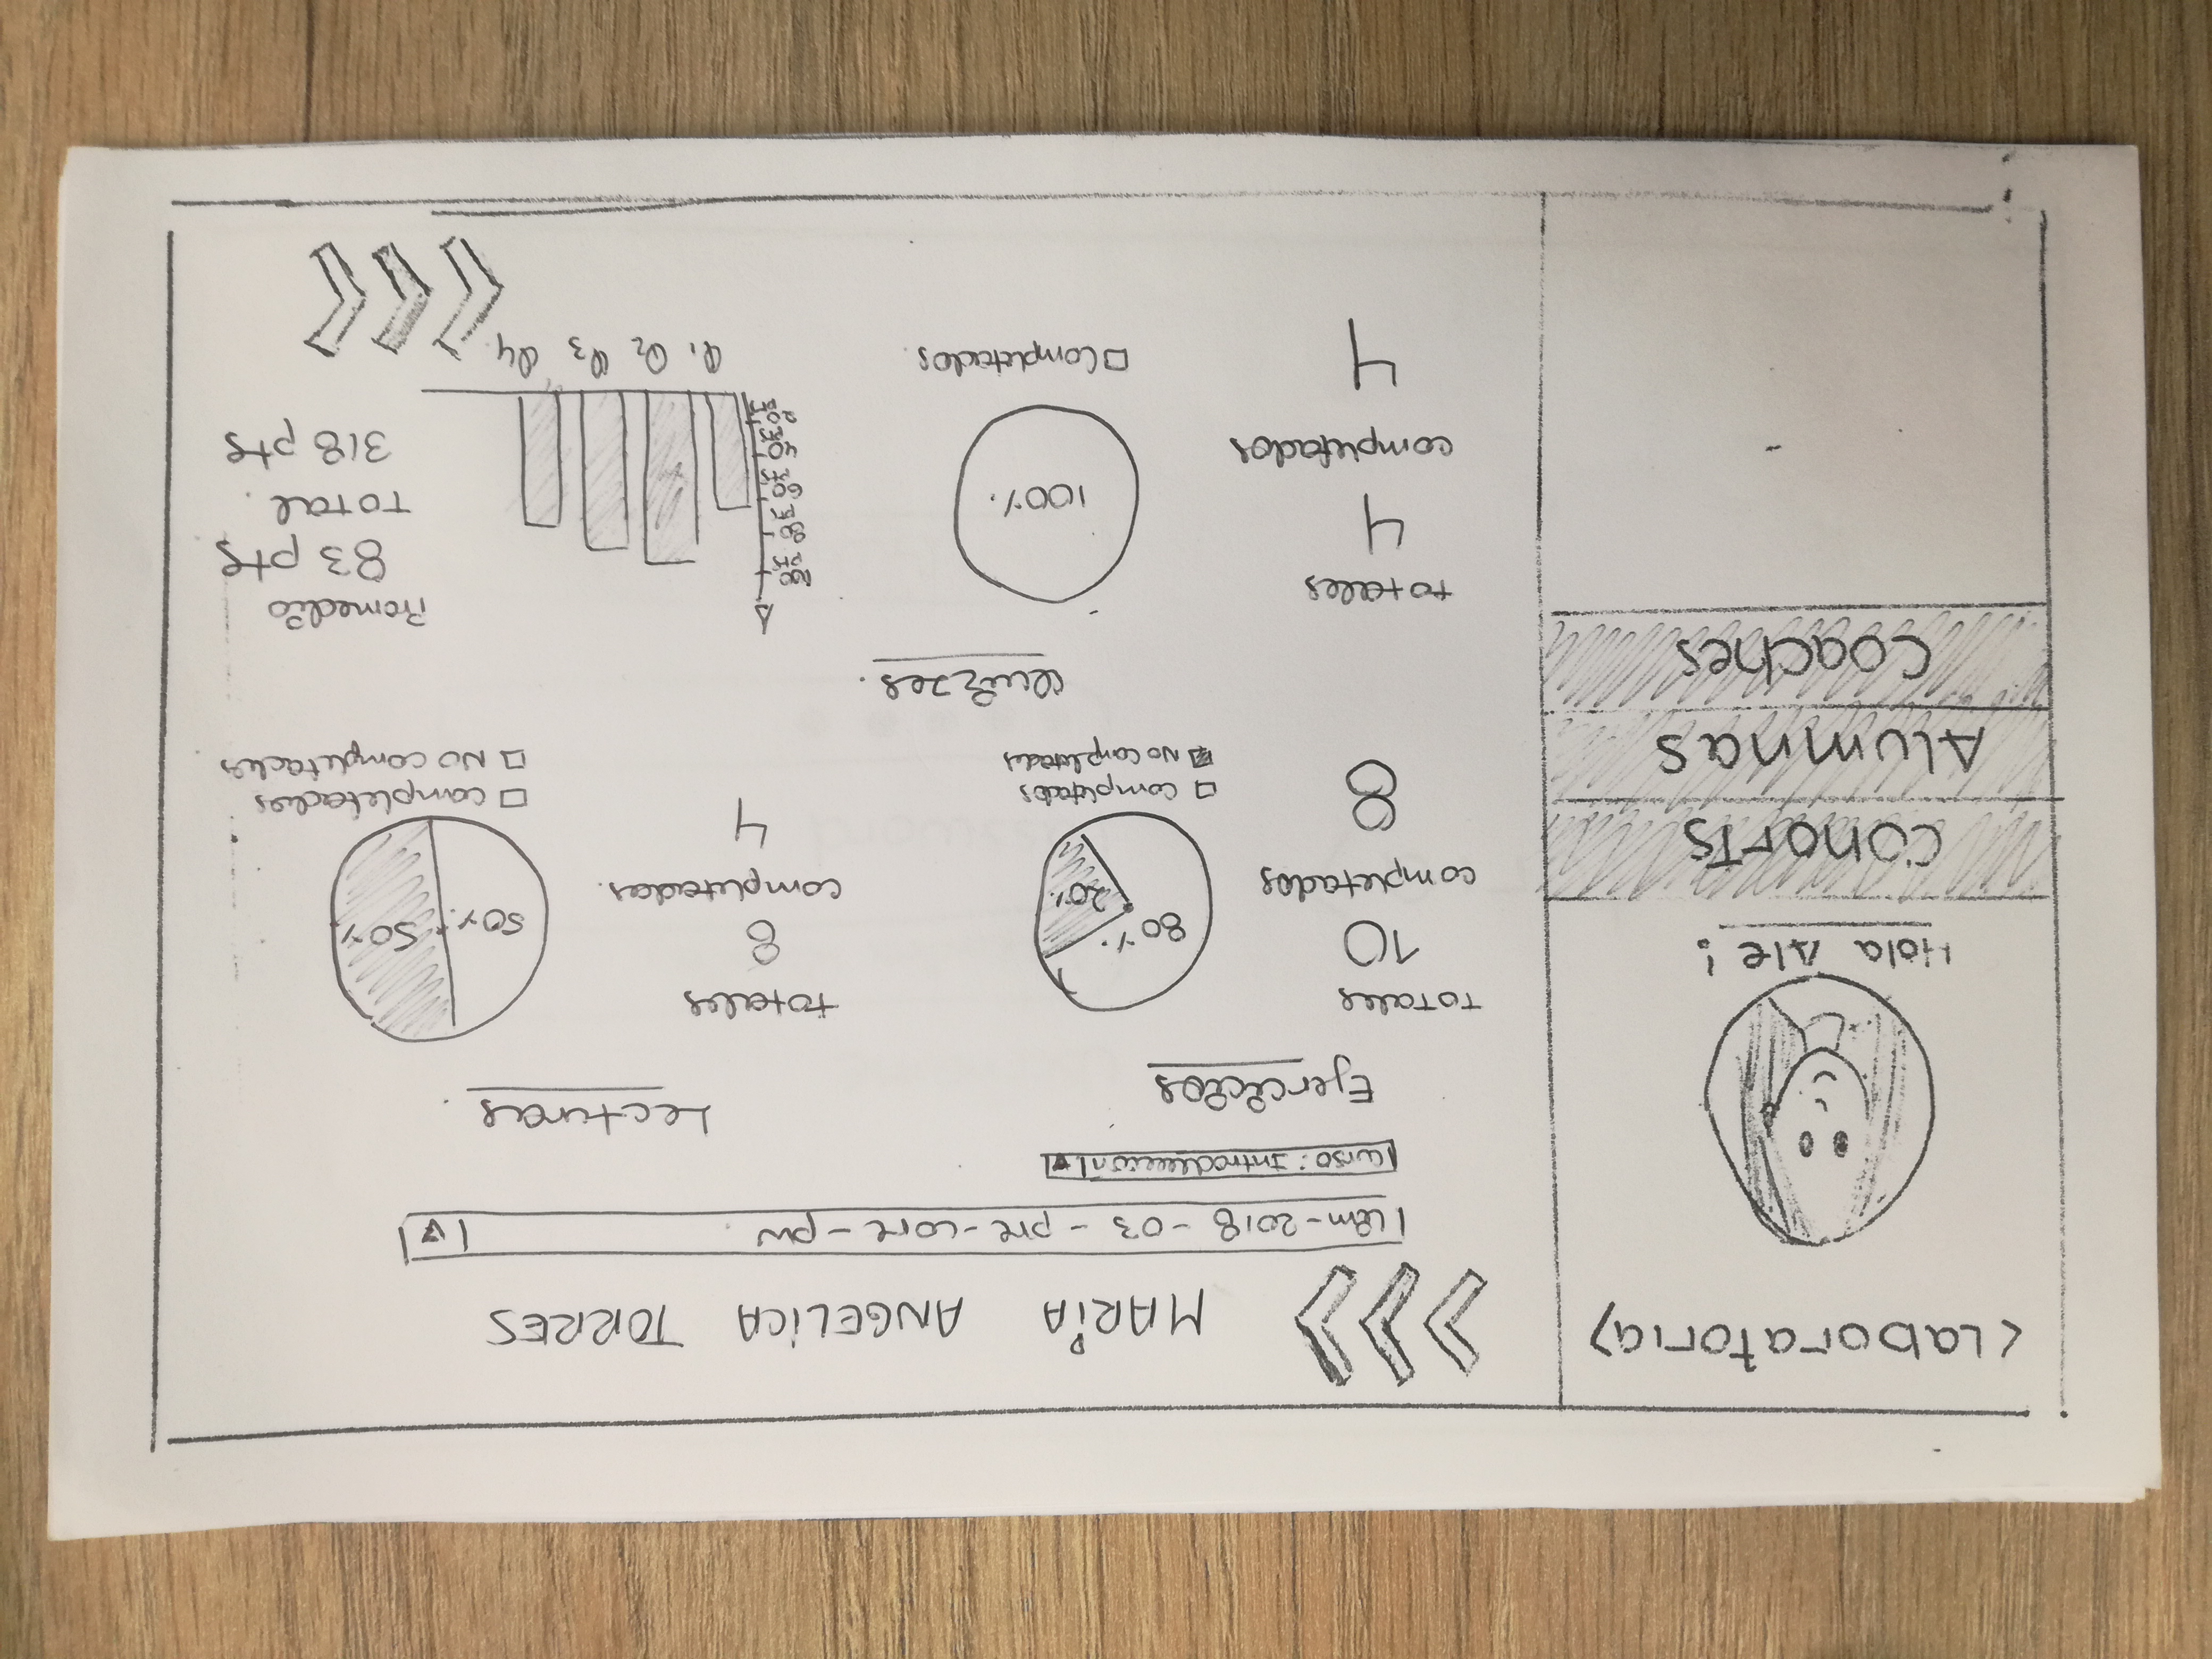 <Laboratoria>
Hola Ale!
Cohorts
Alumnas
Coaches
MARÍA ANGELICA TORRES
lim-2018-03-pre-core-pw
curso: Introduccion
Ejercicios
Totales
10
completados
8
80%
20%
Completados
No Completados
Lecturas.
totales
8
completadas.
4
50% 50%
Completados
No completados
Quizzes.
totales
4
completados
4
100%
Completados.
100 pts
80 pts
60 pts
40 pts
20 pts
Q1 Q2 Q3 Q4
Promedio
83 pts
Total.
318 pts